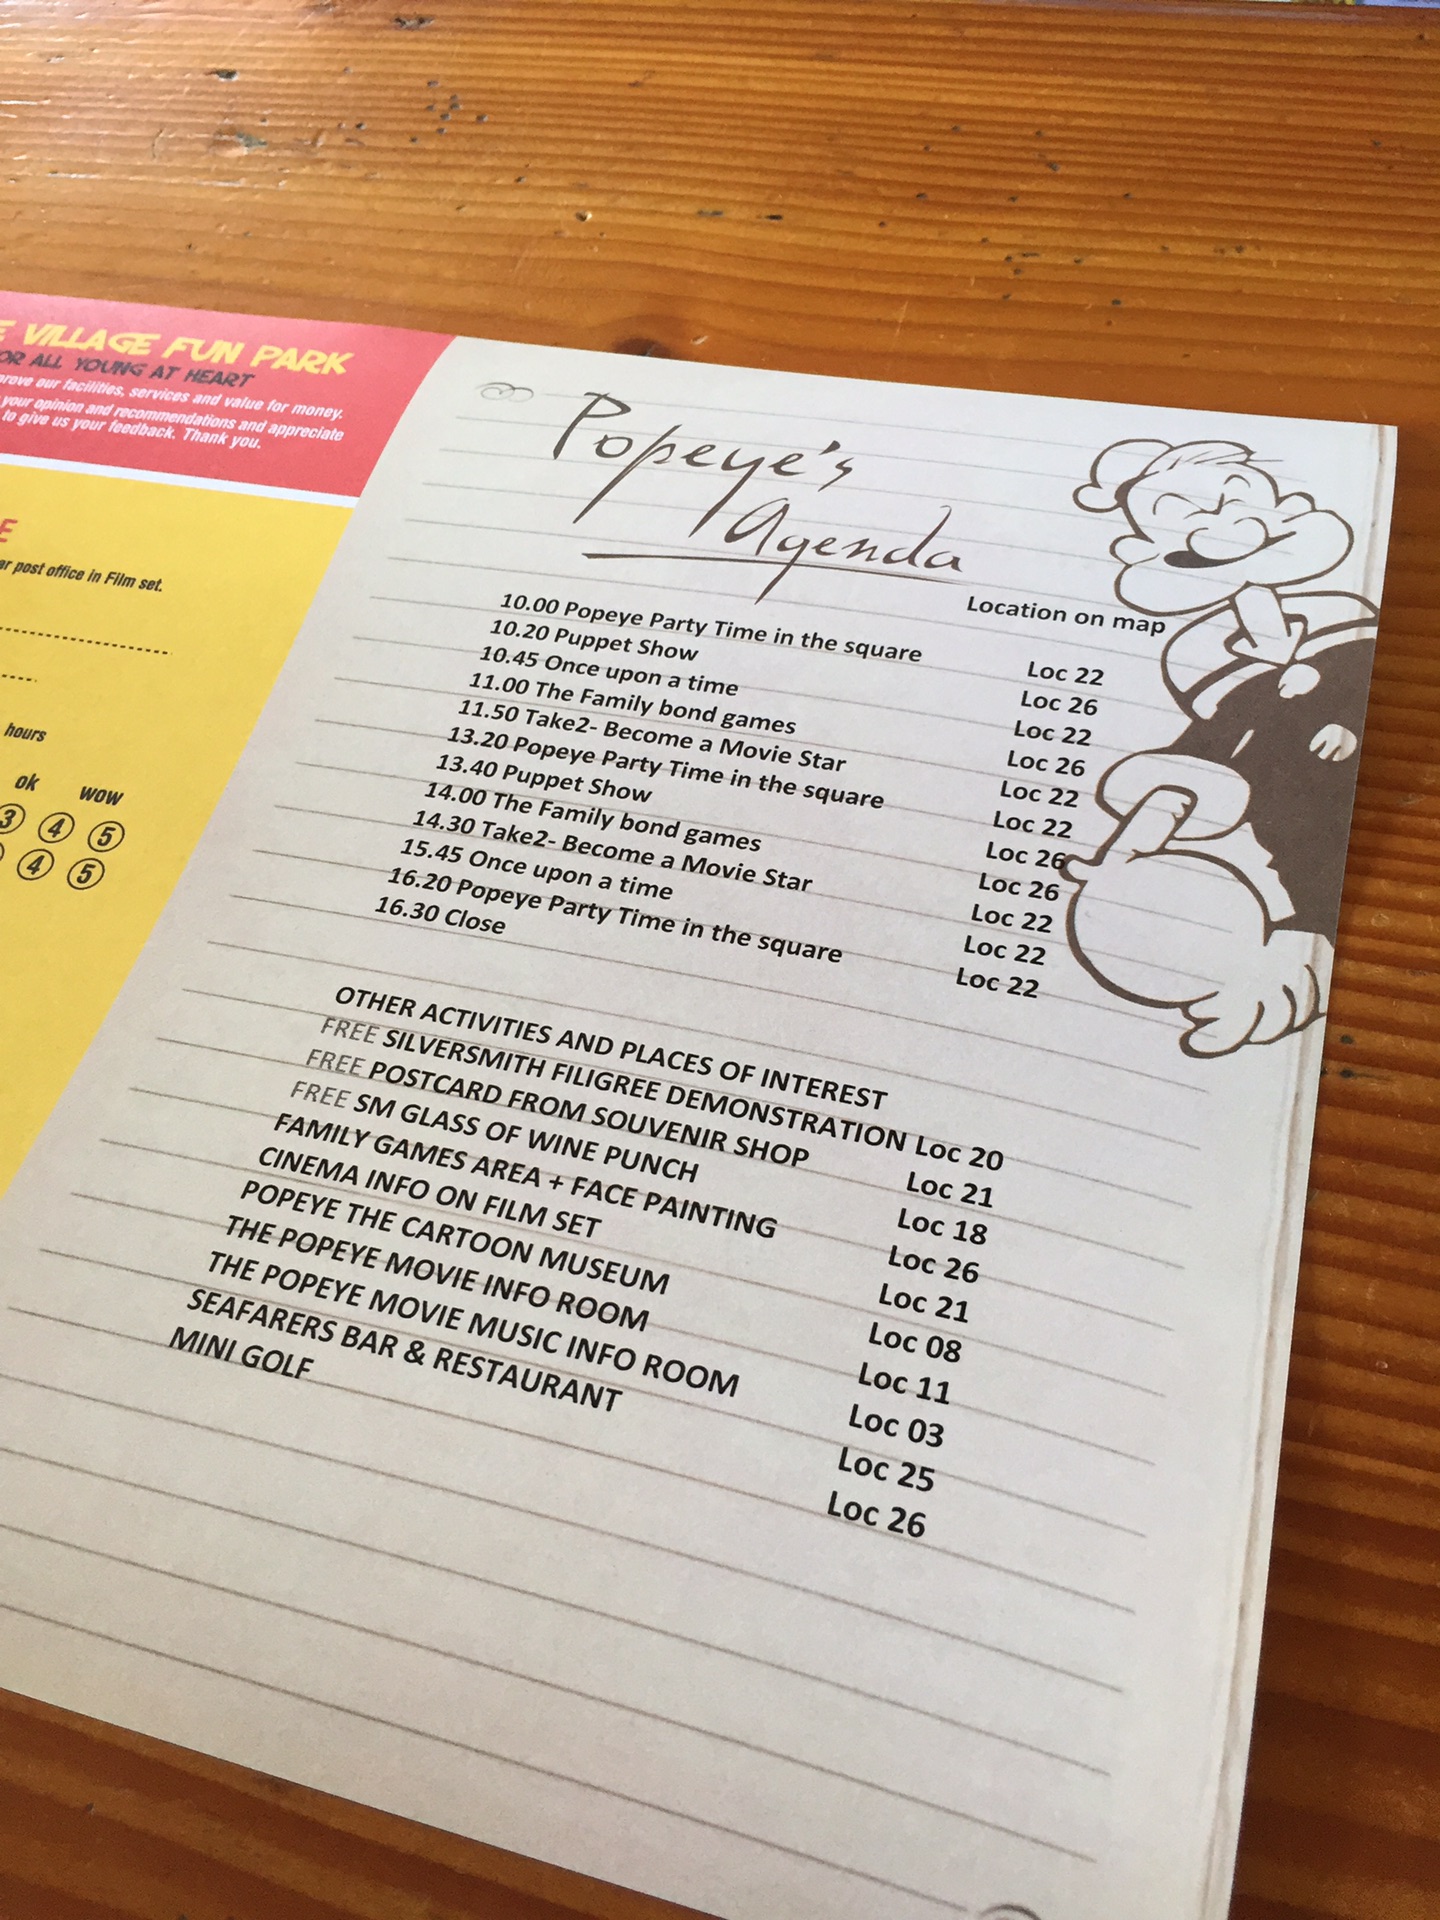 E VILLAGE FUN PARK
OR ALL YOUNG AT HEART
prove our facilities, services and value for money.
your opinion and recommendations and appreciate
to give us your feedback. Thank you.
E
ar post office in Film set.
hours
ok wow
3 4 5
4 5
Popeye's
Agenda
Location on map
10.00 Popeye Party Time in the square Loc 22
10.20 Puppet Show Loc 26
10.45 Once upon a time Loc 22
11.00 The Family bond games Loc 26
11.50 Take2- Become a Movie Star Loc 22
13.20 Popeye Party Time in the square Loc 22
13.40 Puppet Show Loc 26
14.00 The Family bond games Loc 26
14.30 Take2- Become a Movie Star Loc 22
15.45 Once upon a time Loc 22
16.20 Popeye Party Time in the square Loc 22
16.30 Close
OTHER ACTIVITIES AND PLACES OF INTEREST
FREE SILVERSMITH FILIGREE DEMONSTRATION Loc 20
FREE POSTCARD FROM SOUVENIR SHOP Loc 21
FREE SM GLASS OF WINE PUNCH Loc 18
FAMILY GAMES AREA + FACE PAINTING Loc 26
CINEMA INFO ON FILM SET Loc 21
POPEYE THE CARTOON MUSEUM Loc 08
THE POPEYE MOVIE INFO ROOM Loc 11
THE POPEYE MOVIE MUSIC INFO ROOM Loc 03
SEAFARERS BAR & RESTAURANT Loc 25
MINI GOLF Loc 26